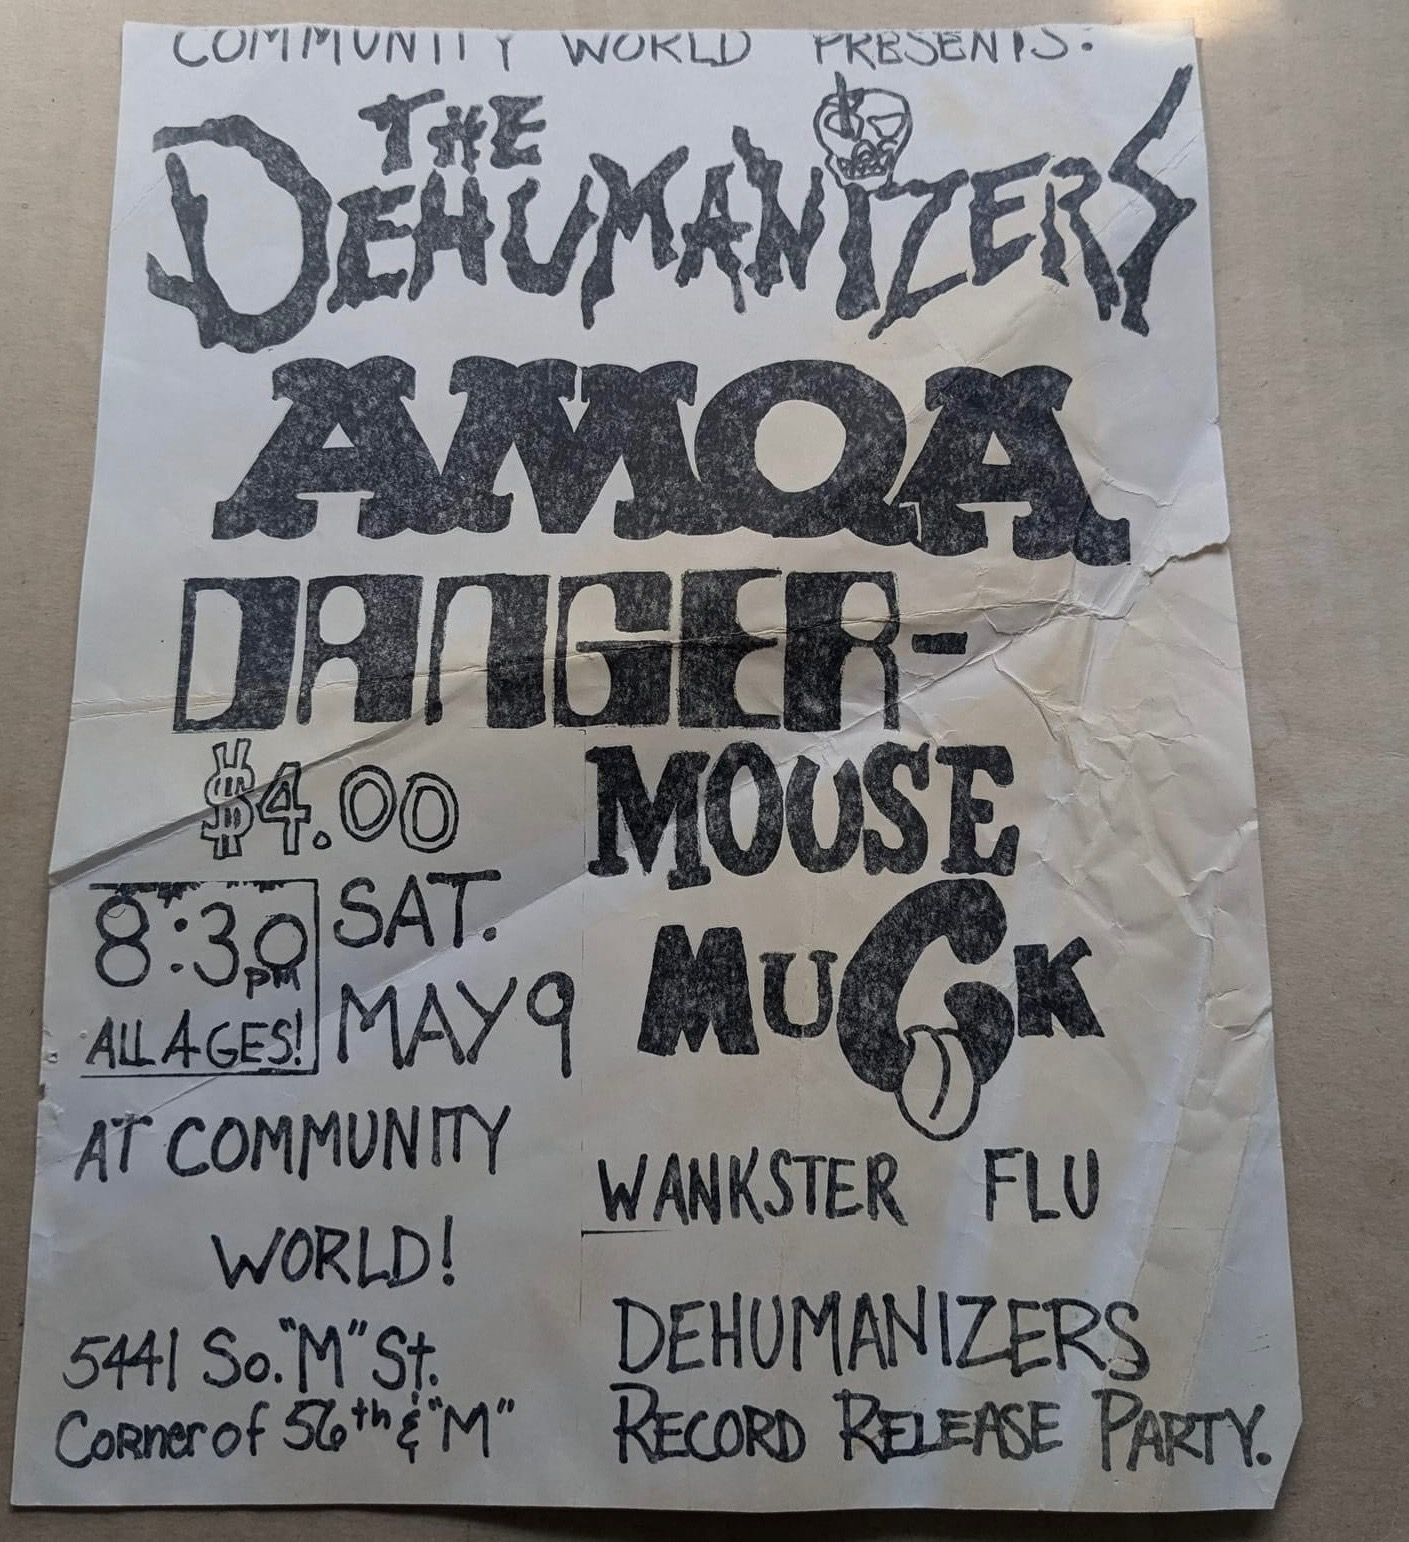 COMMUNITY WORLD PRESENTS:
THE
DEHUMANIZERS
AMQA
DANGER-
MOUSE
$4.00
8:30
pm
ALL AGES!
SAT.
MAY 9
MUCK
AT COMMUNITY
WORLD!
WANKSTER FLU
5441 So. "M" St.
Corner of 56th & "M"
DEHUMANIZERS
RECORD RELEASE PARTY.